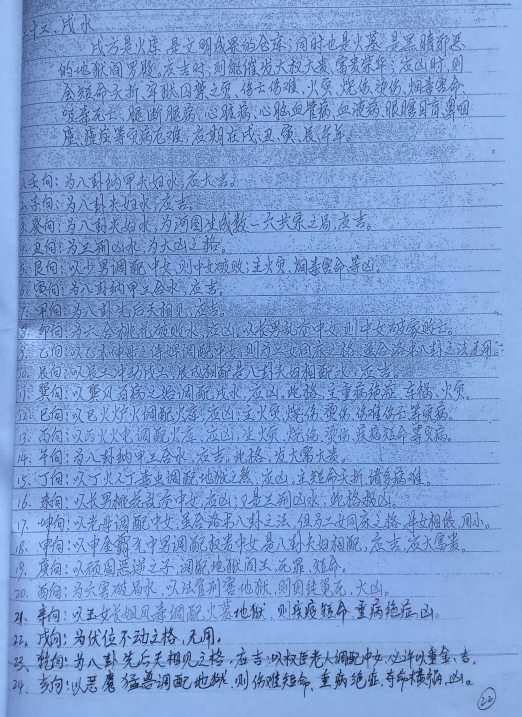 十三、戌水
戌方是火库,是文明成果的仓库;同时也是火墓,是黑暗邪恶
的地狱阎罗殿。应吉时,则能催发大权大贵,富贵荣华;应凶时,则
会短命夭折,牢狱囚禁之灾,伤亡伤难,火灾,烧伤烫伤,烟毒害命,
吸毒死亡,腿断腿病,心脏病,心脑血管病,血液病,眼瞎目盲,鼻咽
癌症等灾病厄难,应期在戌、丑、寅、辰、午年。
1、壬向:为八卦纳甲夫妇水,应大吉。
2、子向:为八卦夫妇水,应吉。
3、癸向:为八卦夫妇水,为河图生成数一六共宗之局,应吉。
4、丑向:为三刑凶水,为大凶之格。
5、艮向:以少男调配中女,则中女破败;主火灾、烟毒害命等凶。
6、寅向:为八卦纳甲三合水,应吉。
7、甲向:为八卦先后天相见,应吉。
8、卯向:为六合桃花破败水,应凶,以长男乱杂中女,则中女破家败亡。
9、乙向:以乙木调配中女,则为二女同床之格,虽合洛书八卦之法,无用。
10、辰向:应吉。
11、巽向:以巽风有病之女调配戌水,应凶,此格,主重病绝症、车祸、火灾。
12、巳向:以巳火炉火调配火库,应凶,主火灾,烧伤,烫伤,伤难伤亡等灾病。
13、丙向:以丙火火电调配火库,应凶,主火灾,烧伤,烫伤,疾病短命等灾病。
14、午向:为八卦纳甲三合水,应吉,此格,发大富大贵。
15、丁向:以丁火毒虫调配地狱之煞,应凶,主短命夭折,诸多磨难。
16、未向:以长男桃花乱杂中女,应凶;又是三刑凶水,此格极凶。
17、坤向:以老母调配中女,虽合洛书八卦之法,但为二女同居之格,母女相伎,用小。
18、申向:以申金霸王中男调配权贵中女,是八卦夫妇相配,应吉,发大富贵。
19、庚向:以顽固恶逆之子,调配阎王,凶罪,短命。
20、酉向:为六害破局水,以法官刑害地狱,则囚徒冤死,大凶。
21、辛向:以玉女长姐风毒调配火墓地狱,则疾疫短命,重病绝症,凶。
22、戌向:为伏位不动之格,无用。
23、乾向:为八卦先后天相见之格,应吉;以权臣老人调配中女,必许以重金,吉。
24、亥向:以恶魔猛兽调配地狱,则伤难短命、重病绝症、夺命横祸,凶。
22